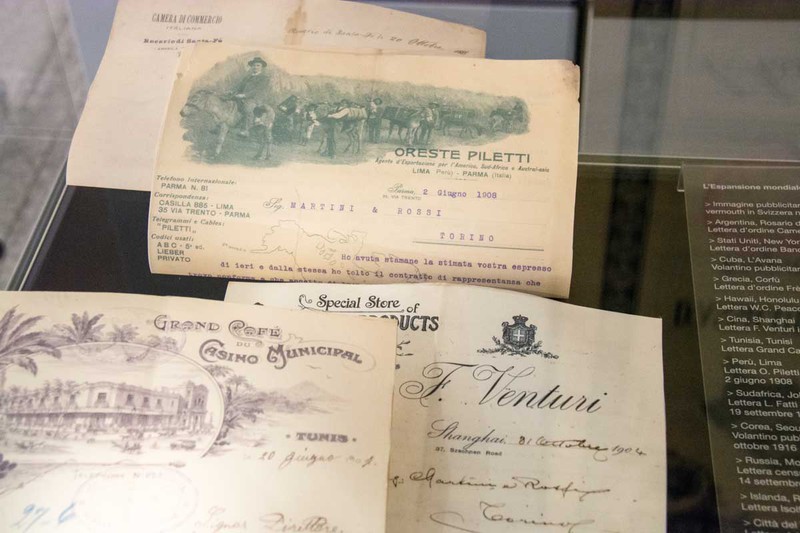 CAMERA DI COMMERCIO
ITALIANA
Rosario di Santa-Fé
20 Ottobre
ORESTE PILETTI
Agente d'Esportazione per l'America, Sud-Africa e Australasia
LIMA (Perù) - PARMA (Italia)
Telefono Internazionale:
PARMA N. 81
Corrispondenza:
CASILLA 885 - LIMA
35 VIA TRENTO - PARMA
Telegrammi e Cables:
"PILETTI"
Codici usati:
A B C - 5ª ed.
LIEBER
PRIVATO
Parma, 2 Giugno 1908
35, VIA TRENTO
Sig. MARTINI & ROSSI
TORINO
Ho avuta stamane la stimata vostra espresso
di ieri e dalla stessa ho tolto il contratto di rappresentanza che
Special Store of
PRODUCTS
F. Venturi
Shanghai, 31 Ottobre 1904
37, Szechuan Road
Martini e Rossi
Torino
GRAND CAFÉ
DU
CASINO MUNICIPAL
TUNIS
20 giugno
TÉLÉPHONE
27-6
Signor Direttore
L'Espansione mondiale
> Immagine pubblicitar
vermouth in Svizzera
> Argentina, Rosario d
Lettera d'ordine Came
> Stati Uniti, New York
Lettera d'ordine Banc
> Cuba, L'Avana
Volantino pubblicitar
> Grecia, Corfù
Lettera d'ordine Frè
> Hawaii, Honolulu
Lettera W.C. Peaco
> Cina, Shanghai
Lettera F. Venturi
> Tunisia, Tunisi
Lettera Grand Ca
> Perù, Lima
Lettera O. Piletti
2 giugno 1908
> Sudafrica, Jo
Lettera L. Fatti
19 settembre 1
> Corea, Seou
Volantino pub
ottobre 1916
> Russia, Mo
Lettera cens
14 settemb
> Islanda, R
Lettera Isol
> Città del